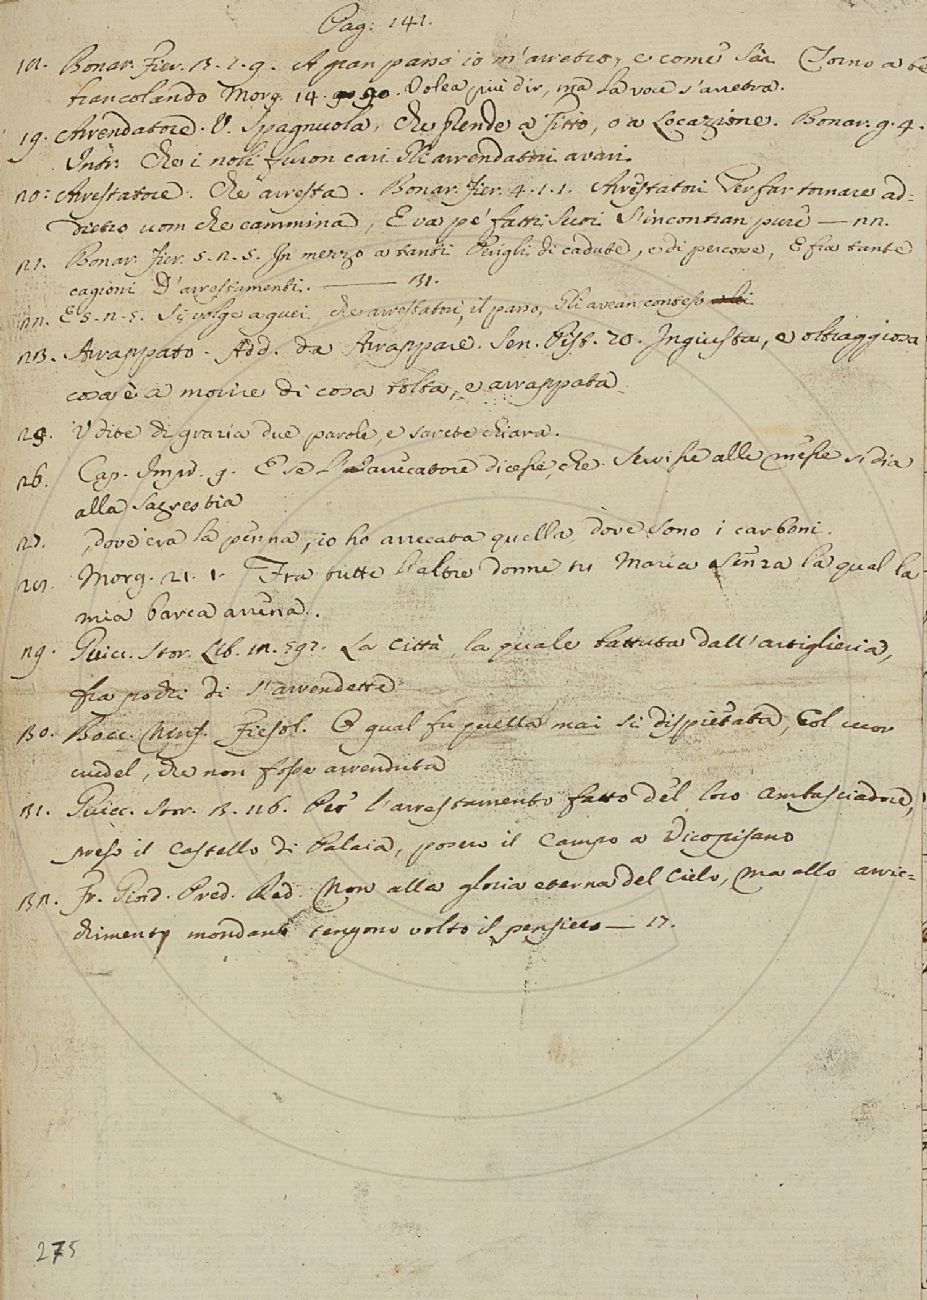 Pag: 141.
18. Bonar. Fier. 3. 2. 9. A gran passo io m'arretro, e come Sia Torno a be
francolando Morg. 14. 90. Volea più dir, ma la voce s'arretra.
19. Arrendatore. V. Spagnuola, Che prende a fitto, o a Locazione. Bonar. g. 4.
Intr. Che i noli furon cari Gli arrendatori avari.
20: Arrestatore. Che arresta. Bonar. Fier. 4. 1. 1. Arrestatori Per far tornare ad-
dietro uom che cammina, E va pe' fatti suoi S'incontran pure — 22.
21. Bonar. Fier. 5. 2. 5. In mezzo a tanti Perigli di cadute, e di percosse, E fra tante
cagioni D'arrestamenti. — 31.
22. E 5. 2. 5. Si volge a quei, che arrestatori, il passo, Gli avean conteso
23. Arrappato. Add. da Arrappare. Sen. Pist. 20. Ingiusta, e oltraggiosa
cosa è a morire di cosa tolta, e arrappata
25. Udite di grazia due parole, e sarete chiara.
26. Cap. Impr. 9. E se l'arrecatore dicesse, che servisse alle messe si dia
alla sagrestia
27. , dove era la penna, io ho arrecata quella, dove sono i carboni.
28. Morg. 21. 1. Fra tutte l'altre donne tu Maria Senza la qual la
mia barca arrena.
29. Guicc. Stor. Lib. 12. 592. La Città, la quale battuta dall'artiglieria,
fra pochi dì s'arrendette
30. Bocc. Ninf. Fiesol. O qual fu quella mai sì dispietata, Col cuor
crudel, che non fosse arrenduta
31. Guicc. Stor. 3. 126. Per l'arrestamento fatto del loro Ambasciadore,
preso il Castello di Palaia, posero il Campo a Vicopisano
32. Fr. Giord. Pred. Red. Non alla gloria eterna del Cielo, ma allo arric-
chimento mondano tengono volto il pensiero — 17.
275